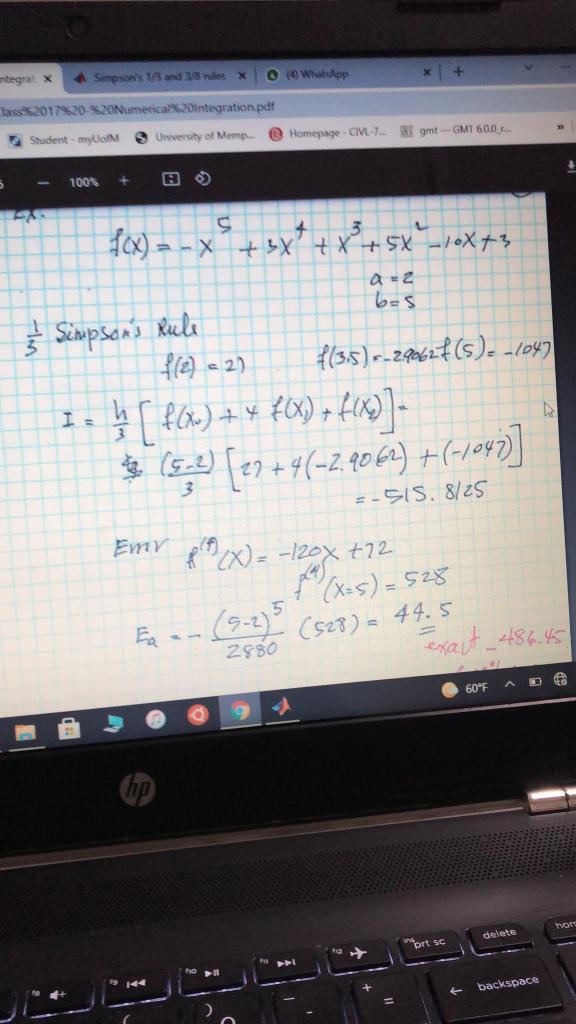 ntegrat × Simpson's 1/3 and 3/8 rules × (4) WhatsApp × +
lass%2017%20-%20Numerical%20Integration.pdf
Student - myUofM University of Memp... Homepage - CIVL-7... gmt — GMT 6.0.0_r... »
− 100% +
Ex.
f(x) = -x^5 + 3x^4 + x^3 + 5x^2 - 10x + 3
a = 2
b = 5
1/3 Simpson's Rule
f(2) = 27 f(3.5) = -29062 f(5) = -1047
I = h/3 [ f(x₀) + 4 f(x₁) + f(x₂) ] =
(5-2)/3 [ 27 + 4(-2.9062) + (-1047) ]
= -515.8125
Error f^(4)(x) = -120x + 72
f^(4)(x=5) = 528
Ea = - (5-2)^5/2880 (528) = 44.5
exact - 486.45
60°F
hp
f8 f9 f10 f11 f12 ins prt sc delete hom
+ = ← backspace